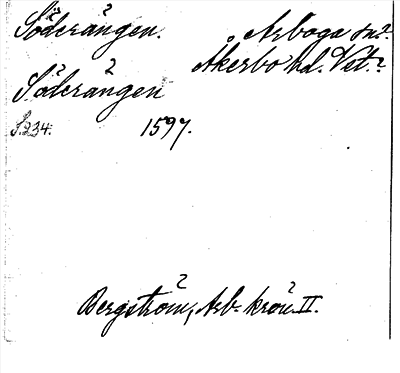 Söderängen.
Arboga sn?
Åkerbo hd. Vstm.
Söderängen
S. 234. 1597.
Bergström, Arb. krön II.